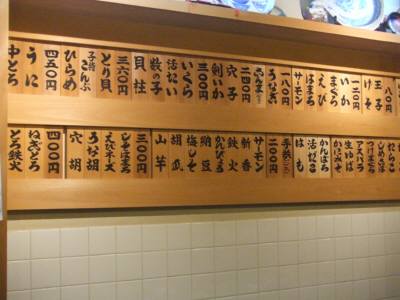 八〇円
玉子
げそ
一二〇円
いか
まぐろ
えび
はまち
サーモン
一八〇円
うなぎ
二四〇円
穴子
剣いか
三〇〇円
いくら
活だい
数の子
貝柱
三六〇円
とり貝
子持こんぶ
ひらめ
四五〇円
うに
中とろ
しめさば
アスパラ
生ゆば
かにみそ
かんぱち
活だこ
はも
手巻
二〇〇円
サーモン
新香
鉄火
かんぴょう
納豆
梅しそ
胡瓜
山芋
三〇〇円
えびマヨネーズ
うな胡
穴胡
四〇〇円
ねぎとろ
とろ鉄火